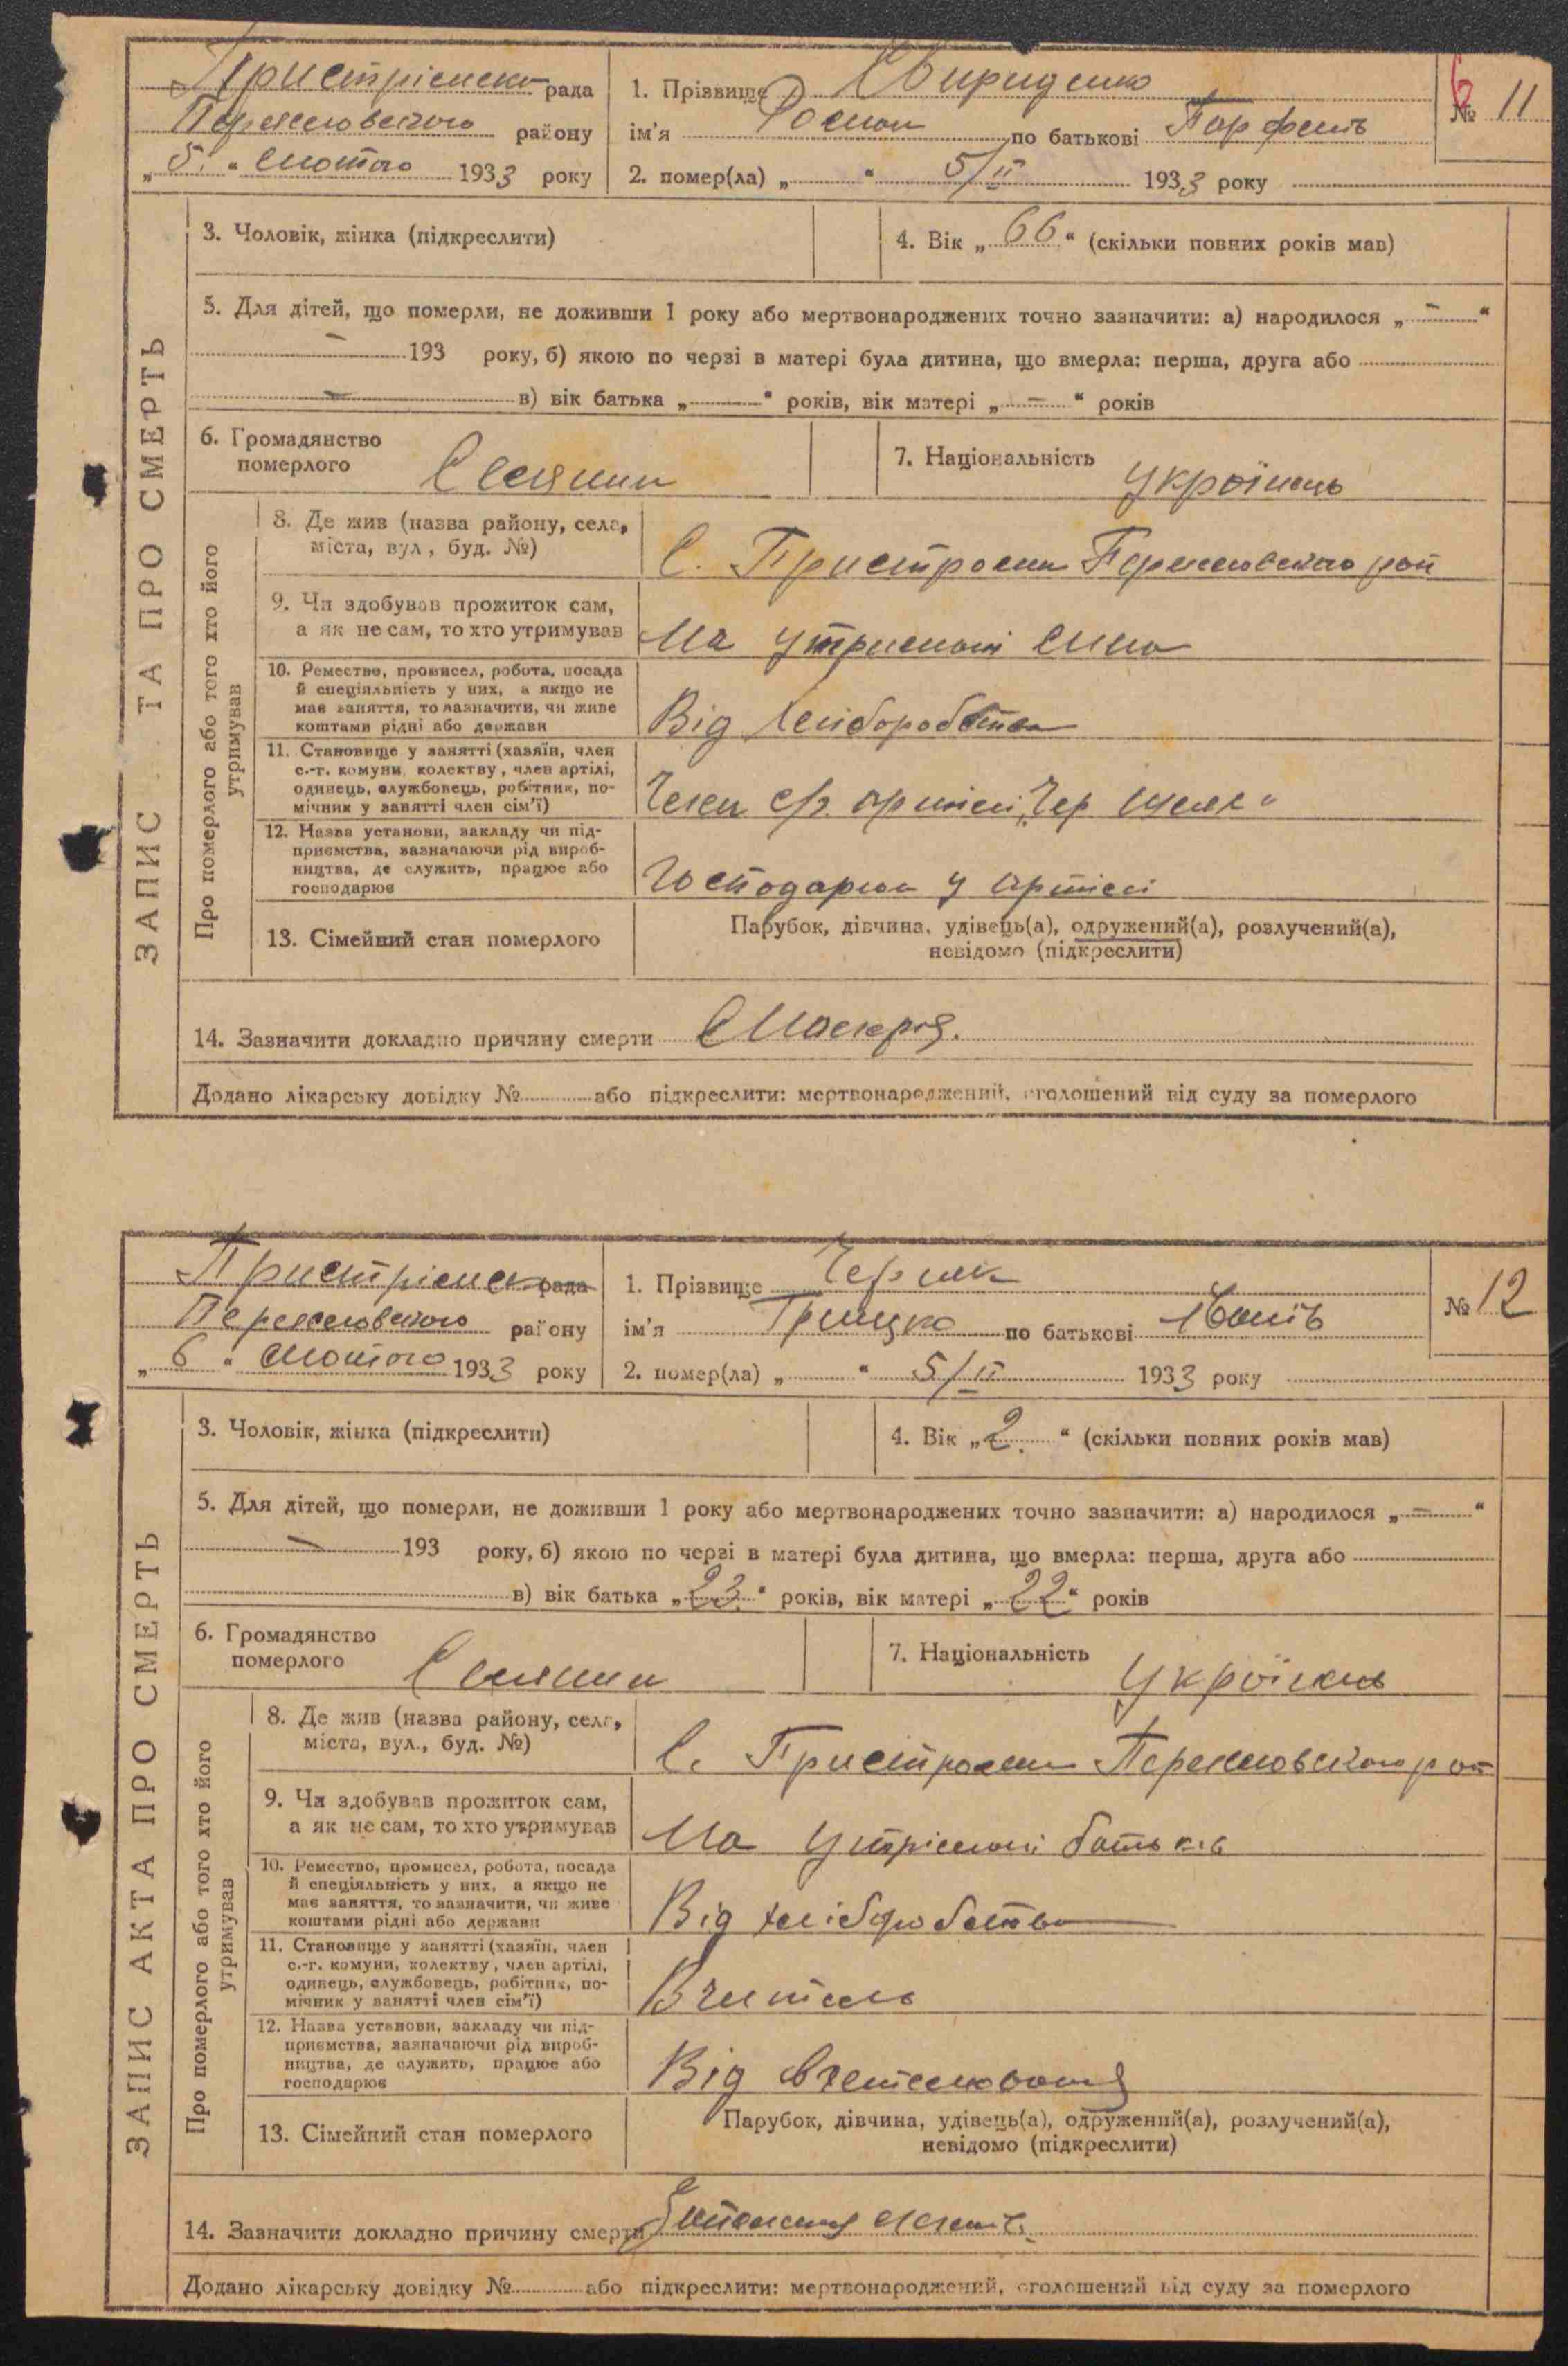 ЗАПИС ТА ПРО СМЕРТЬ
Пристрімська рада
Переяславського району
„5.“ лютого 1933 року
1. Прізвище Свириденко
ім'я Роман по батькові Парфенів
2. помер(ла) „ “ 5/II 1933 року
6
№ 11
3. Чоловік, жінка (підкреслити)
4. Вік „66“ (скільки повних років мав)
5. Для дітей, що померли, не доживши 1 року або мертвонароджених точно зазначити: а) народилося „ – “
– 193 року, б) якою по черзі в матері була дитина, що вмерла: перша, друга або
– в) вік батька „ “ років, вік матері „ – “ років
6. Громадянство
померлого Селянин
7. Національність українець
Про померлого або того хто його
утримував
8. Де жив (назва району, села,
міста, вул., буд. №)
С. Пристроми Переяславського рай
9. Чи здобував прожиток сам,
а як не сам, то хто утримував
На утримані сина
10. Ремество, промисел, робота, посада
й спеціяльність у них, а якщо не
має заняття, то зазначити, чи живе
коштами рідні або держави
Від хліборобства
11. Становище у занятті (хазяїн, член
с.-г. комуни, колективу, член артілі,
одинець, службовець, робітник, по-
мічник у занятті член сім'ї)
Член с/г. артілі „Чер шлях“
12. Назва установи, закладу чи під-
приємства, зазначаючи рід вироб-
ництва, де служить, працює або
господарює
Господарює у артілі
13. Сімейний стан померлого
Парубок, дівчина, удівець(а), одружений(а), розлучений(а),
невідомо (підкреслити)
14. Зазначити докладно причину смерти
Додано лікарську довідку № або підкреслити: мертвонароджений, оголошений від суду за померлого
ЗАПИС АКТА ПРО СМЕРТЬ
Пристрімськ рада
Переяславського району
„6“ лютого 1933 року
1. Прізвище Черняк
ім'я Грицко по батькові Іванів
2. помер(ла) „ “ 5/II 1933 року
№ 12
3. Чоловік, жінка (підкреслити)
4. Вік „2.“ (скільки повних років мав)
5. Для дітей, що померли, не доживши 1 року або мертвонароджених точно зазначити: а) народилося „ – “
– 193 року, б) якою по черзі в матері була дитина, що вмерла: перша, друга або
в) вік батька „23.“ років, вік матері „22“ років
6. Громадянство
померлого Селянин
7. Національність українець
Про померлого або того хто його
утримував
8. Де жив (назва району, села,
міста, вул., буд. №)
С. Пристроми Переяславського рай
9. Чи здобував прожиток сам,
а як не сам, то хто утримував
На утрімані батьків
10. Ремество, промисел, робота, посада
й спеціяльність у них, а якщо не
має заняття, то зазначити, чи живе
коштами рідні або держави
Від хліборобства
11. Становище у занятті (хазяїн, член
с.-г. комуни, колективу, член артілі,
одинець, службовець, робітник, по-
мічник у занятті член сім'ї)
Вчитель
12. Назва установи, закладу чи під-
приємства, зазначаючи рід вироб-
ництва, де служить, працює або
господарює
Від вчителювання
13. Сімейний стан померлого
Парубок, дівчина, удівець(а), одружений(а), розлучений(а),
невідомо (підкреслити)
14. Зазначити докладно причину смерти Запалення легенів.
Додано лікарську довідку № або підкреслити: мертвонароджений, оголошений від суду за померлого